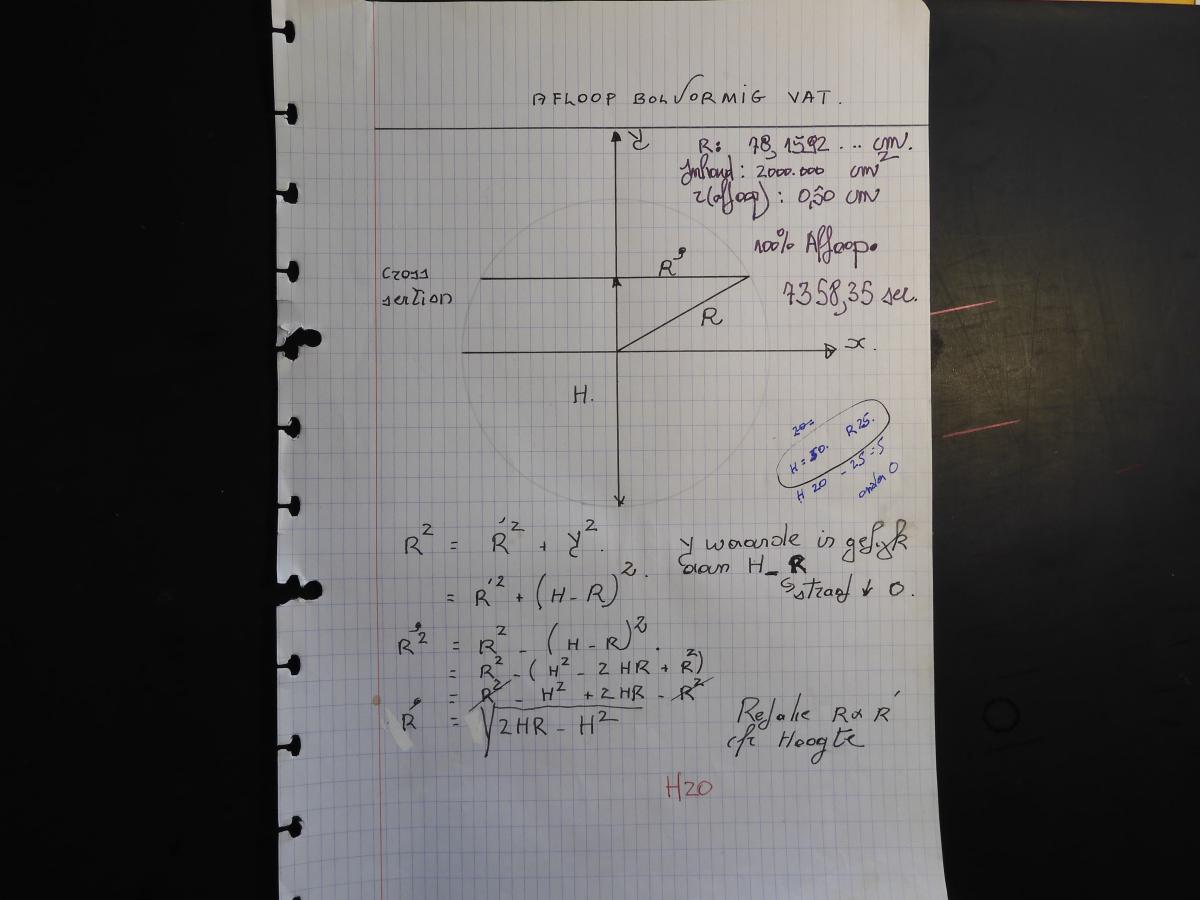 AFLOOP BOLVORMIG VAT.
Y
R: 78,1592 ... cm.
Inhoud: 2000.000 cm²
r(afloop): 0,50 cm
100% Afloop.
R'
Cross
section
7358,35 sec.
R
x.
H.
20=
H = 50. R 25.
H 20 - 25 = 5
onder 0
R² = R'² + Y².
y waarde is gelijk
aan H - R
= R'² + (H - R)².
straal ↓ 0.
R'² = R² - (H - R)².
= R² - (H² - 2HR + R²)
= R² - H² + 2HR - R²
R' = √2HR - H²
Relatie R & R'
cfr Hoogte
H20